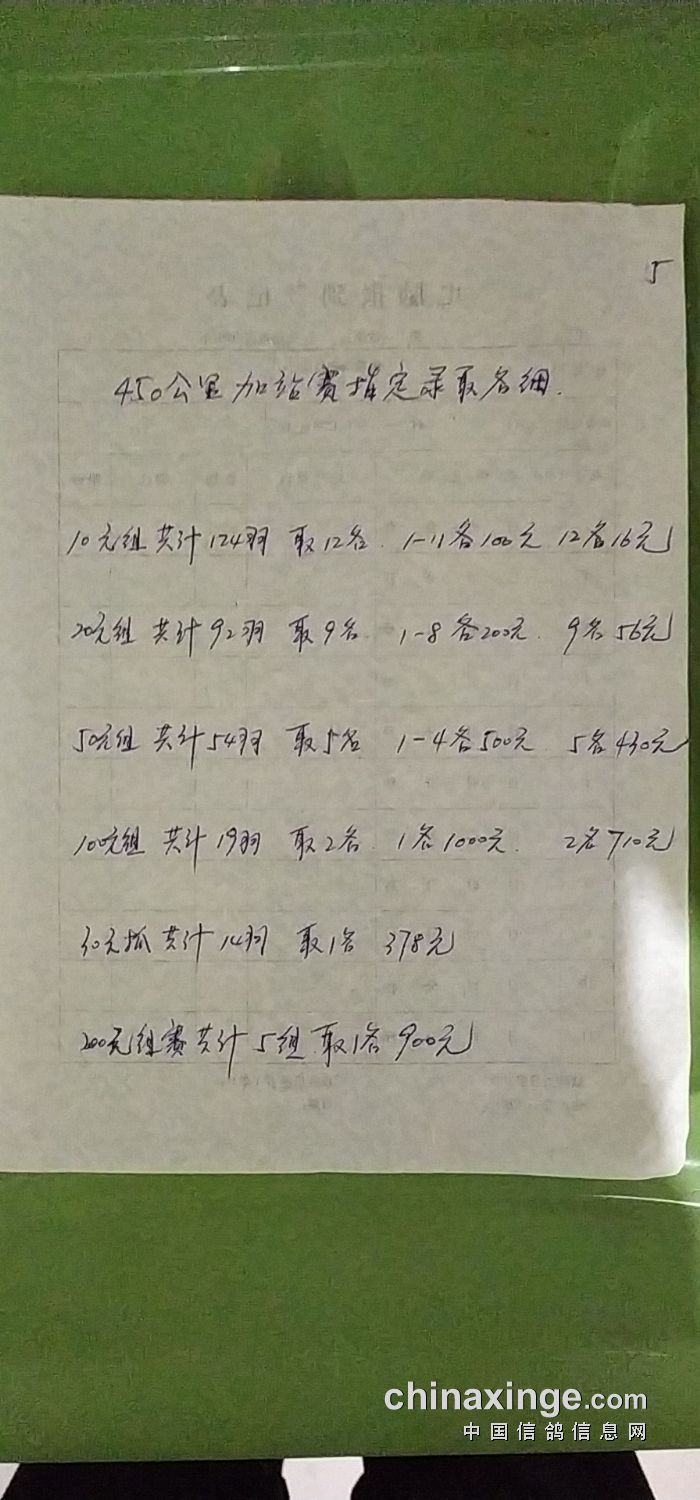 5
450公里加站赛指定录取名细.
10元组 共计124羽 取12名. 1-11各100元 12名16元
20元组 共计92羽 取9名. 1-8各200元. 9名56元
50元组 共计54羽 取5名 1-4各500元 5名430元
100元组 共计19羽 取2名. 1名1000元. 2名710元
30元抓 共计14羽 取1名 378元
200元组赛共计5组 取1名 900元
chinaxinge.com
中国信鸽信息网